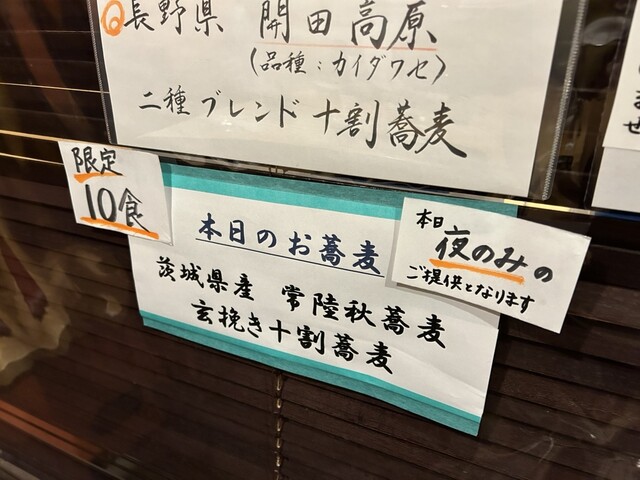 長野県 開田高原
(品種:カイダワセ)
二種ブレンド十割蕎麦
限定
10食
本日のお蕎麦
茨城県産 常陸秋蕎麦
玄挽き十割蕎麦
本日
夜のみの
ご提供となります